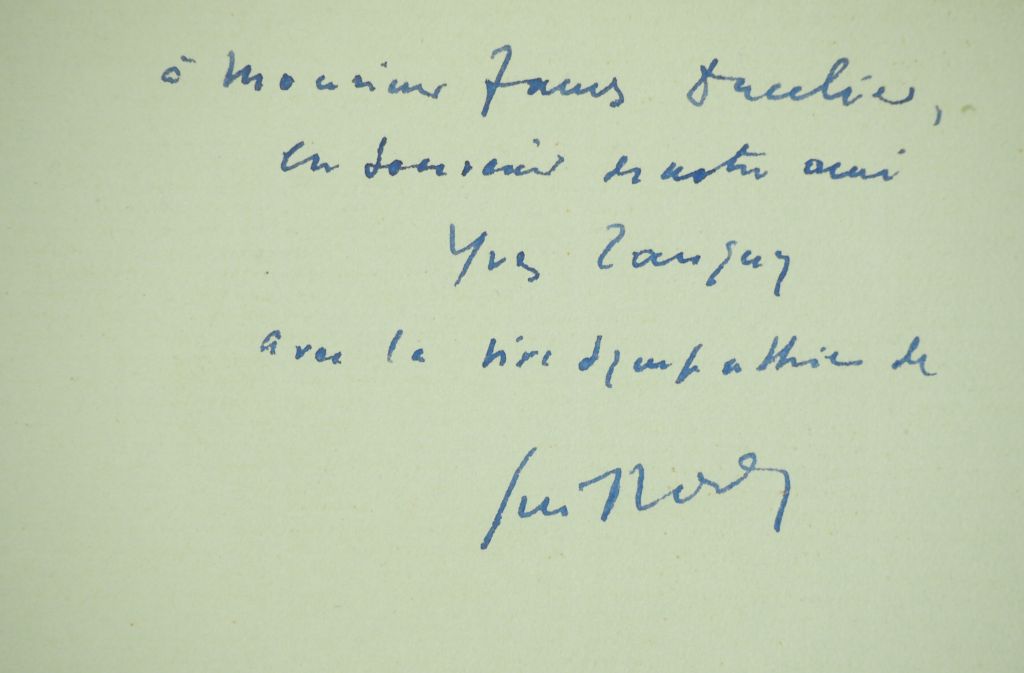 à Monsieur James
en souvenir de notre ami
Yves Tanguy
avec la vive sympathie de
Gui Rosey